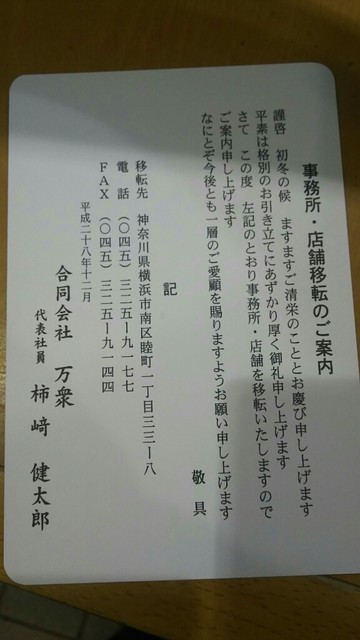 事務所・店舗移転のご案内
謹啓　初冬の候　ますますご清栄のこととお慶び申し上げます
平素は格別のお引き立てにあずかり厚く御礼申し上げます
さて　この度　左記のとおり事務所・店舗を移転いたしますので
ご案内申し上げます
なにとぞ今後とも一層のご愛顧を賜りますようお願い申し上げます
敬具
記
移転先　神奈川県横浜市南区睦町一丁目三三ー八
電話　（〇四五）三二五ー九一七七
ＦＡＸ　（〇四五）三二五ー九一四四
平成二十八年十二月
合同会社　万衆
代表社員　柿﨑　健太郎